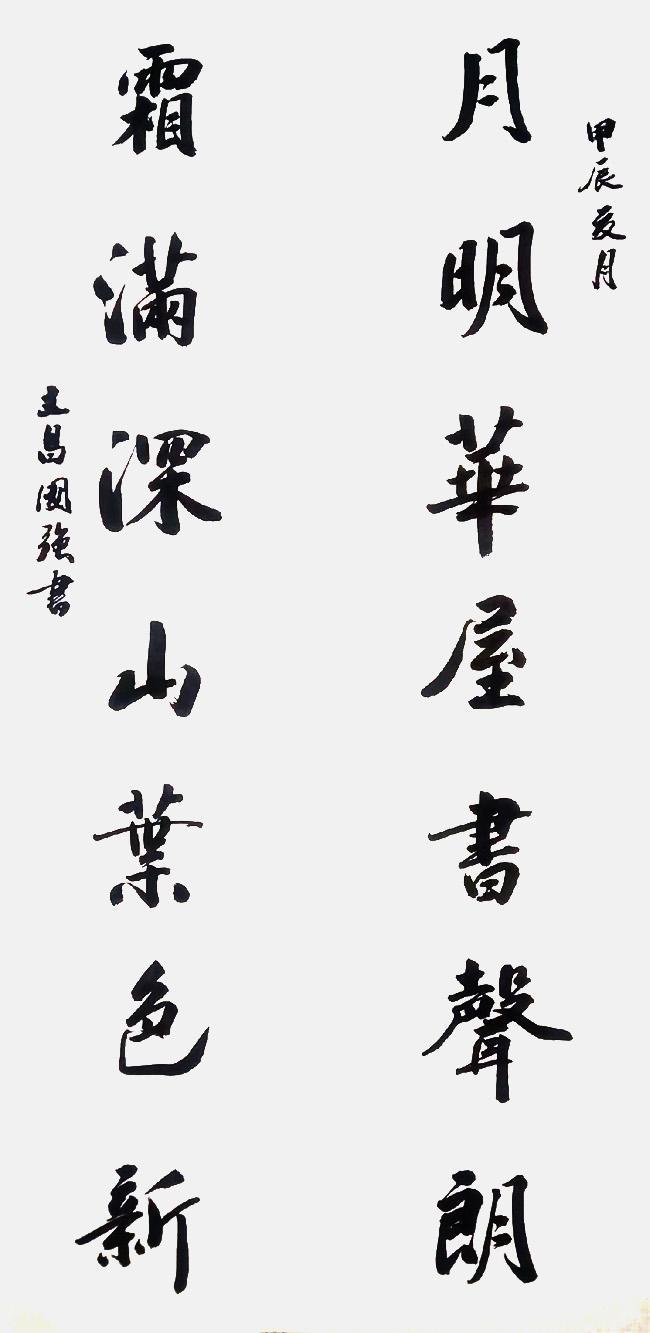 甲辰夏月
月明華屋書聲朗
霜滿深山葉色新
昌國強書